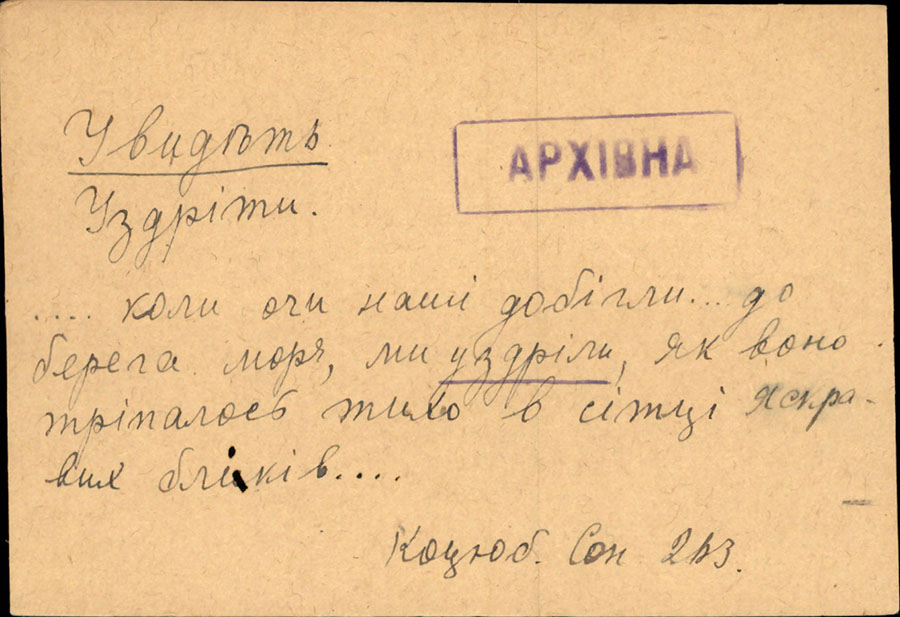 Увидѣть
АРХІВНА
Уздріти.
.... коли очи наші добігли... до
берега моря, ми уздріли, як воно
тріпалось тихо в сітці яскра-
вих бликів....
Коцюб. Сон